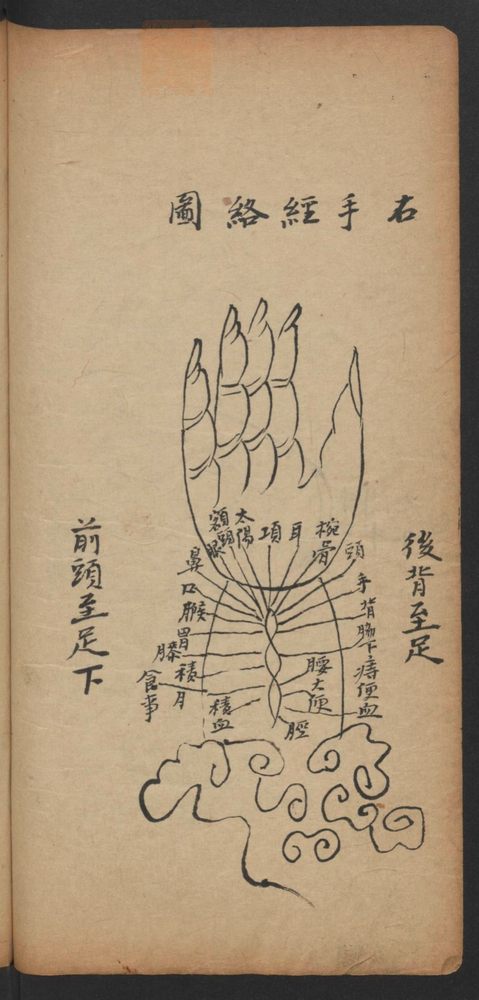 右手經絡圖
後背至足
頭
椀骨
耳
項
太陽
額頭
眼
鼻
口
喉
胃
膝
積
月
食事
積血
手
背
脇下
痔便血
腰
大便
脛
前頭至足下